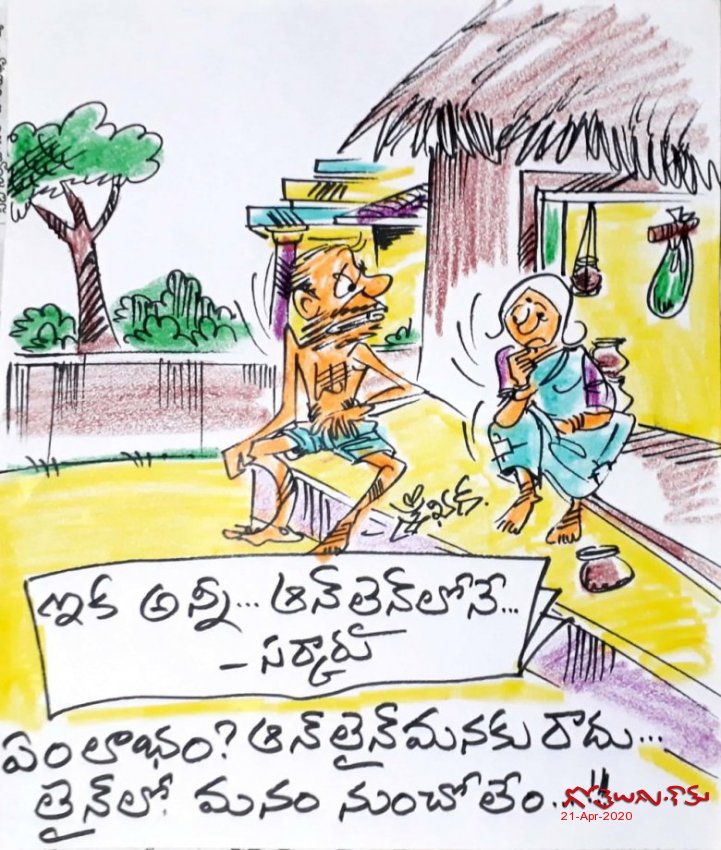 ఇక అన్నీ... ఆన్‌లైన్‌లోనే...
- సర్కారు
ఏం లాభం? ఆన్‌లైన్‌మనకు రాదు...
లైన్‌లో మనం నుంచోలేం..!!
గోతెలుగు.కామ్
21-Apr-2020
శేఖర్.